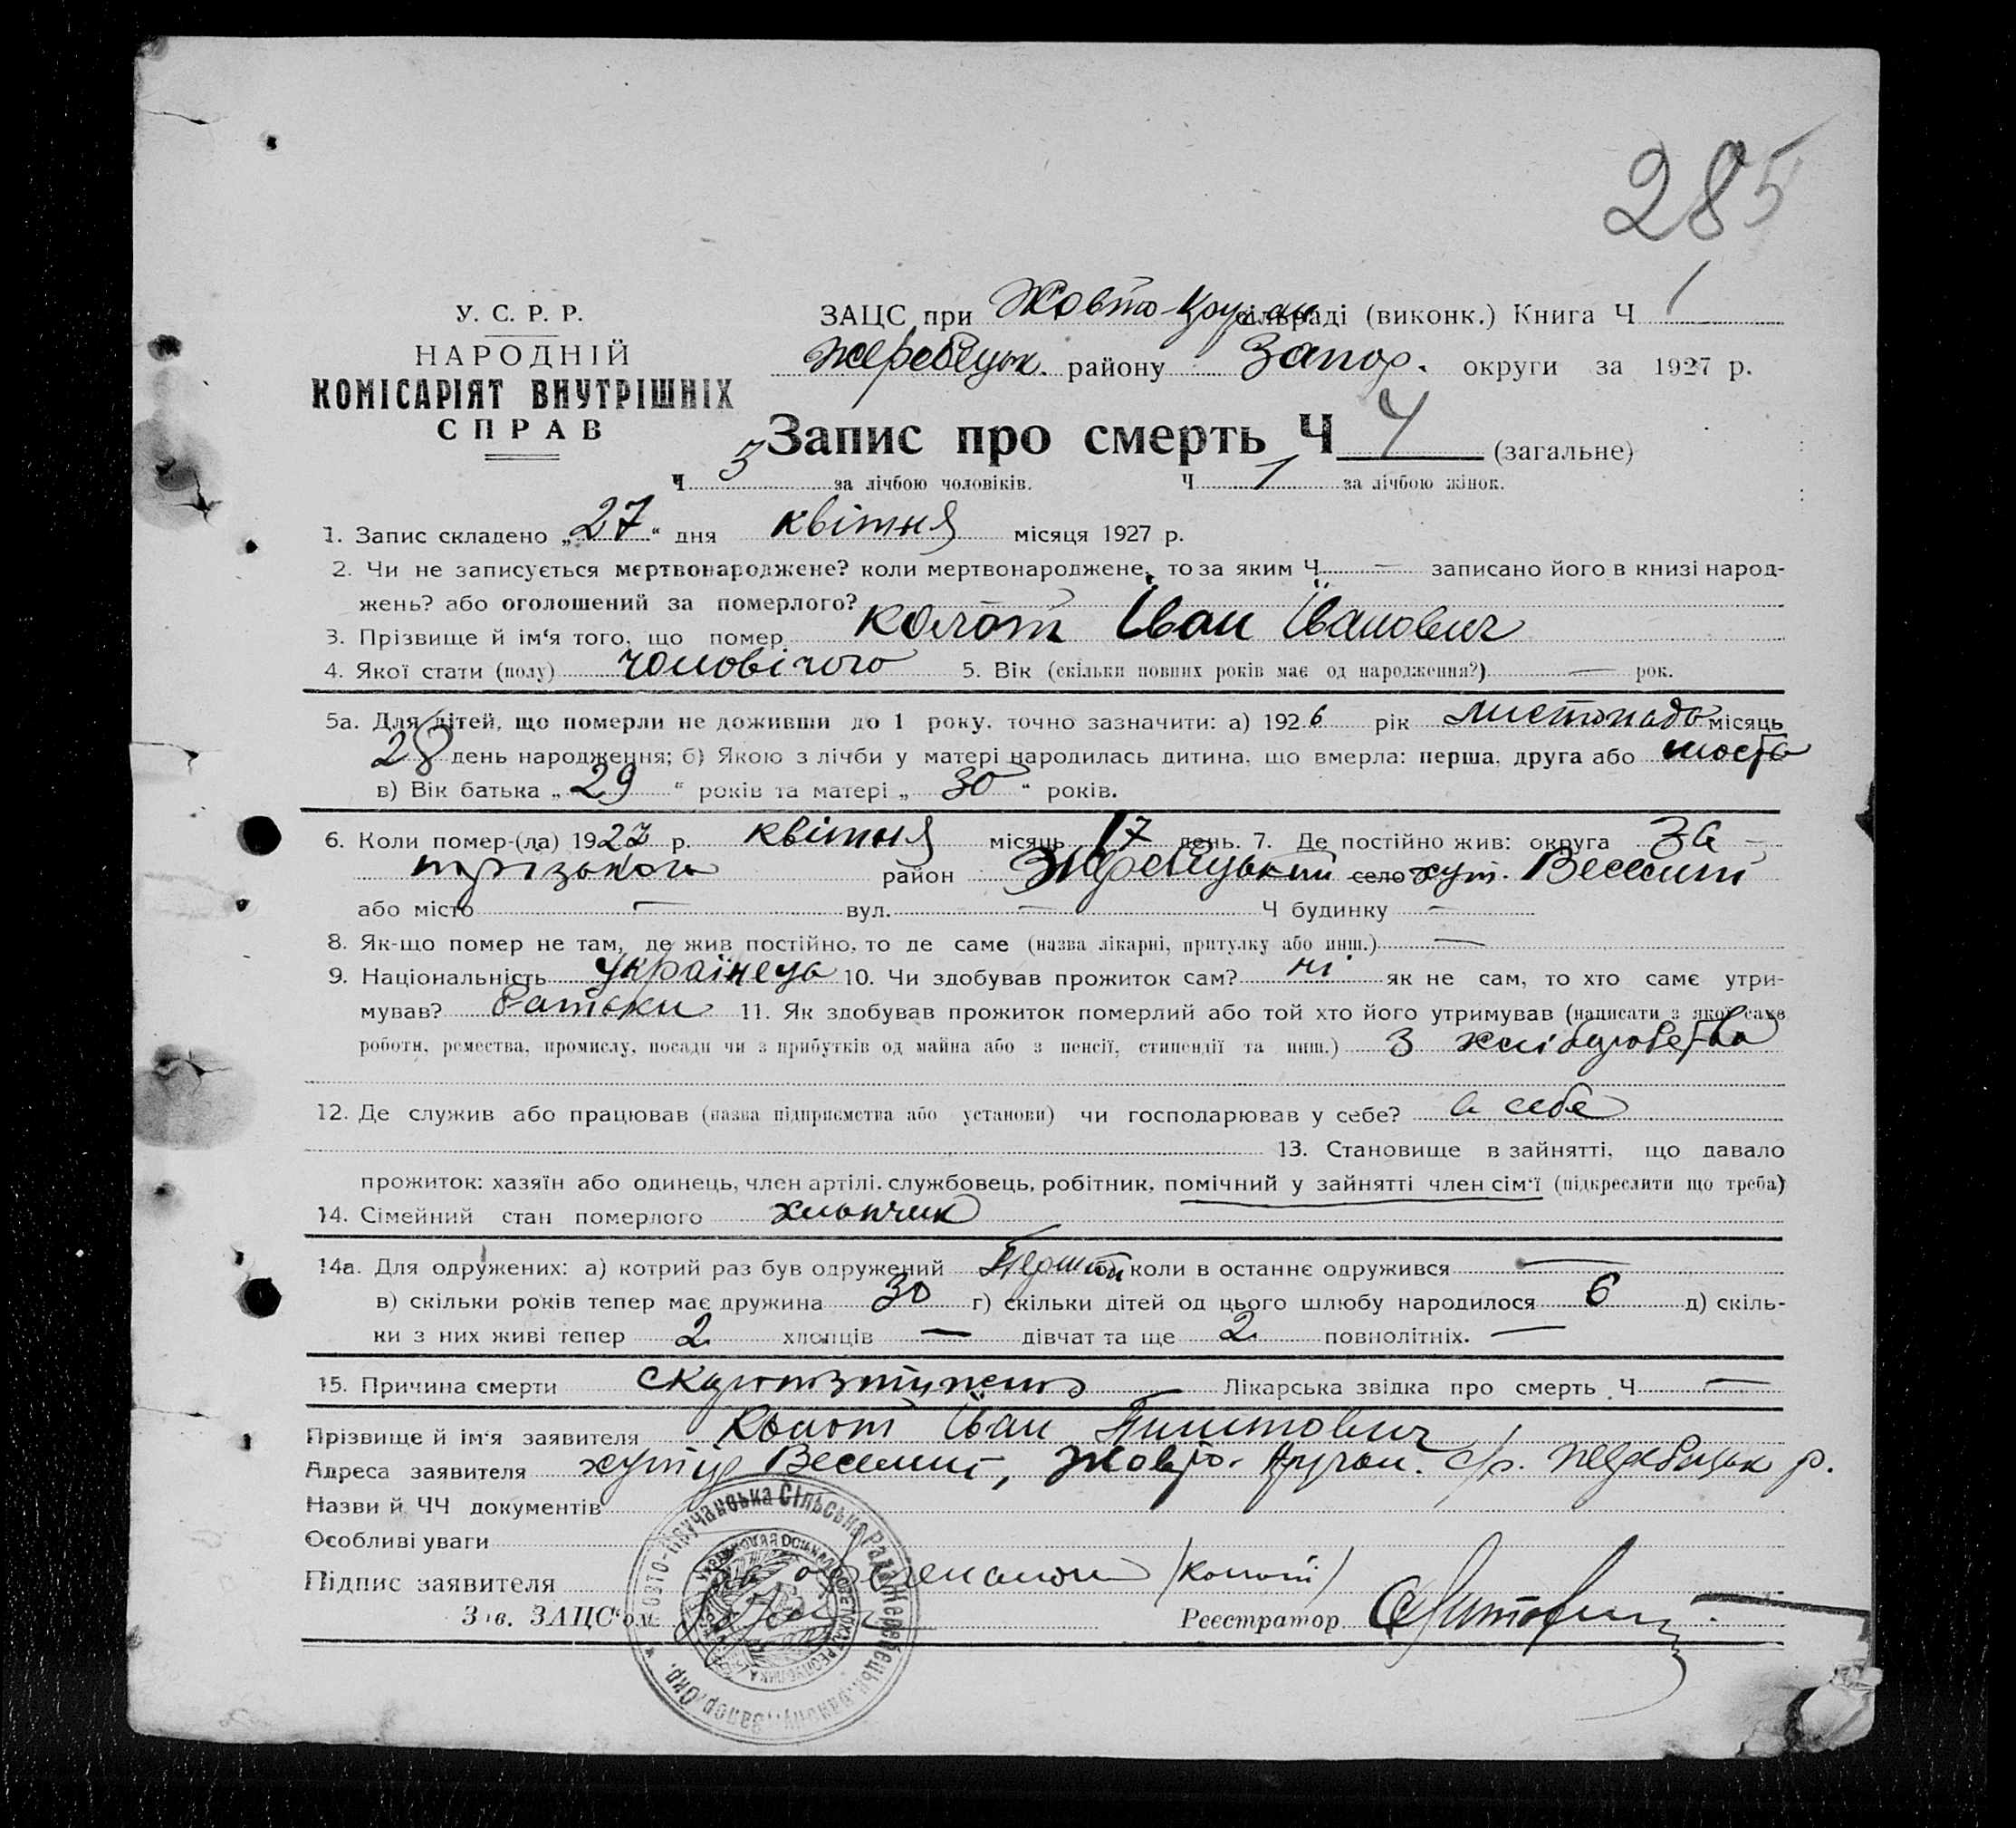 285
У. С. Р. Р.
НАРОДНІЙ
КОМІСАРІЯТ ВНУТРІШНІХ
СПРАВ
ЗАЦС при Жовто-Кручан сільраді (виконк.) Книга Ч 1
Жеребецьк. району Запор. округи за 1927 р.
Запис про смерть Ч 4 (загальне)
Ч 3 за лічбою чоловіків. Ч 1 за лічбою жінок.
1. Запис складено „27" дня квітня місяця 1927 р.
2. Чи не записується мертвонароджене? коли мертвонароджене, то за яким Ч — записано його в книзі народ-
жень? або оголошений за померлого?
3. Прізвище й ім'я того, що помер Колот Іван Іванович
4. Якої стати (полу) чоловічого 5. Вік (скільки повних років має од народження?) — рок.
5а. Для дітей, що померли не доживши до 1 року, точно зазначити: а) 1926 рік листопада місяць
28 день народження; б) Якою з лічби у матері народилась дитина, що вмерла: перша, друга або шоста
в) Вік батька „29" років та матері „30" років.
6. Коли помер-(ла) 1927 р. квітня місяць 17 день. 7. Де постійно жив: округа За-
порізького район Жеребецький село хут. Веселий
або місто — вул. — Ч будинку —
8. Як-що помер не там, де жив постійно, то де саме (назва лікарні, притулку або инш.) —
9. Національність українець 10. Чи здобував прожиток сам? ні як не сам, то хто саме утри-
мував? батьки 11. Як здобував прожиток померлий або той хто його утримував (написати з якої саме
роботи, ремества, промислу, посади чи з прибутків од майна або з пенсії, стипендії та инш.) з хліборобства
12. Де служив або працював (назва підприємства або установи) чи господарював у себе? в себе
13. Становище в зайнятті, що давало
прожиток: хазяїн або одинець, член артілі, службовець, робітник, помічний у зайнятті член сім'ї (підкреслити що треба)
14. Сімейний стан померлого хлопчик
14а. Для одружених: а) котрий раз був одружений Перший коли в останнє одружився —
в) скільки років тепер має дружина 30 г) скільки дітей од цього шлюбу народилося 6 д) скіль-
ки з них живі тепер 2 хлопців — дівчат та ще 2 повнолітніх. —
15. Причина смерти Лікарська звідка про смерть Ч —
Прізвище й ім'я заявителя Колот Іван
Адреса заявителя хутір Веселий, Жовто-Кручан. с/р. Жеребецьк р.
Назви й ЧЧ документів
Особливі уваги
Підпис заявителя /Колот/
Зав. ЗАЦС'ом Реєстратор
Жовто-Кручанська Сільська Рада Жеребецьк. району, Запор. Окр.